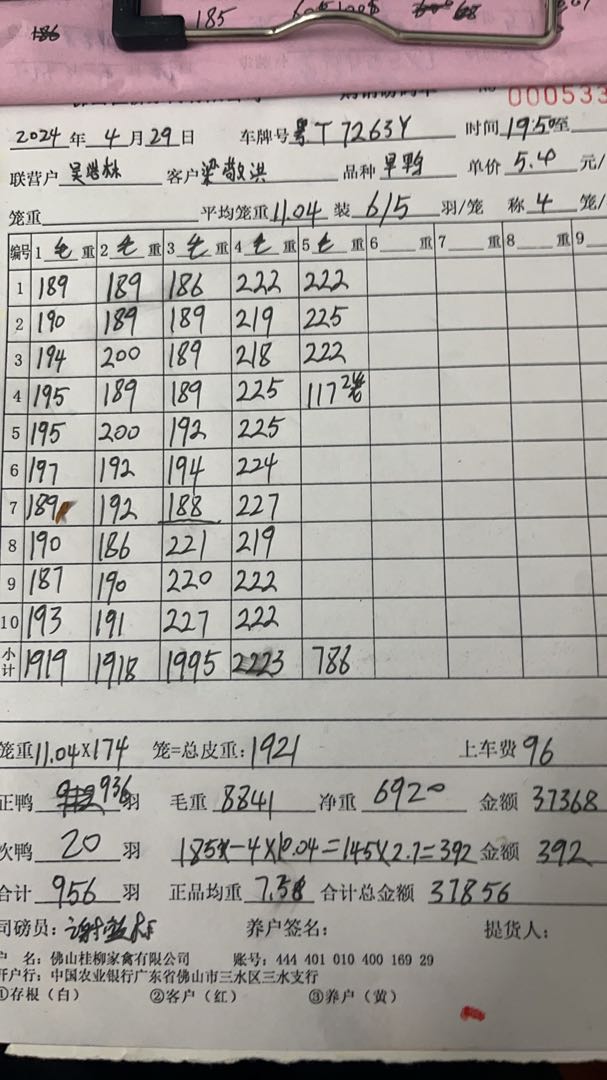 185
000533
2024年4月29日 车牌号粤T7263Y 时间19:50至
联营户 客户梁敬洪 品种旱鸭 单价5.4元/
笼重 平均笼重11.04 装6/5羽/笼 称4笼/
编号 1毛重 2毛重 3毛重 4毛重 5毛重 6重 7重 8重 9
1 189 189 186 222 222
2 190 189 189 219 225
3 194 200 189 218 222
4 195 189 189 225 117 2笼
5 195 200 192 225
6 197 192 194 224
7 189 192 188 227
8 190 186 221 219
9 187 190 220 222
10 193 191 227 222
小计 1919 1918 1995 2223 786
笼重11.04×174 笼=总皮重:1921 上车费96
正鸭936羽 毛重8841 净重6920 金额37368
次鸭20羽 185斤-4×10.04=145×2.7=392 金额392
合计956羽 正品均重7.38 合计总金额37856
司磅员: 养户签名: 提货人:
户 名:佛山桂柳家禽有限公司 账号:444 401 010 400 169 29
开户行:中国农业银行广东省佛山市三水区三水支行
①存根(白) ②客户(红) ③养户(黄)